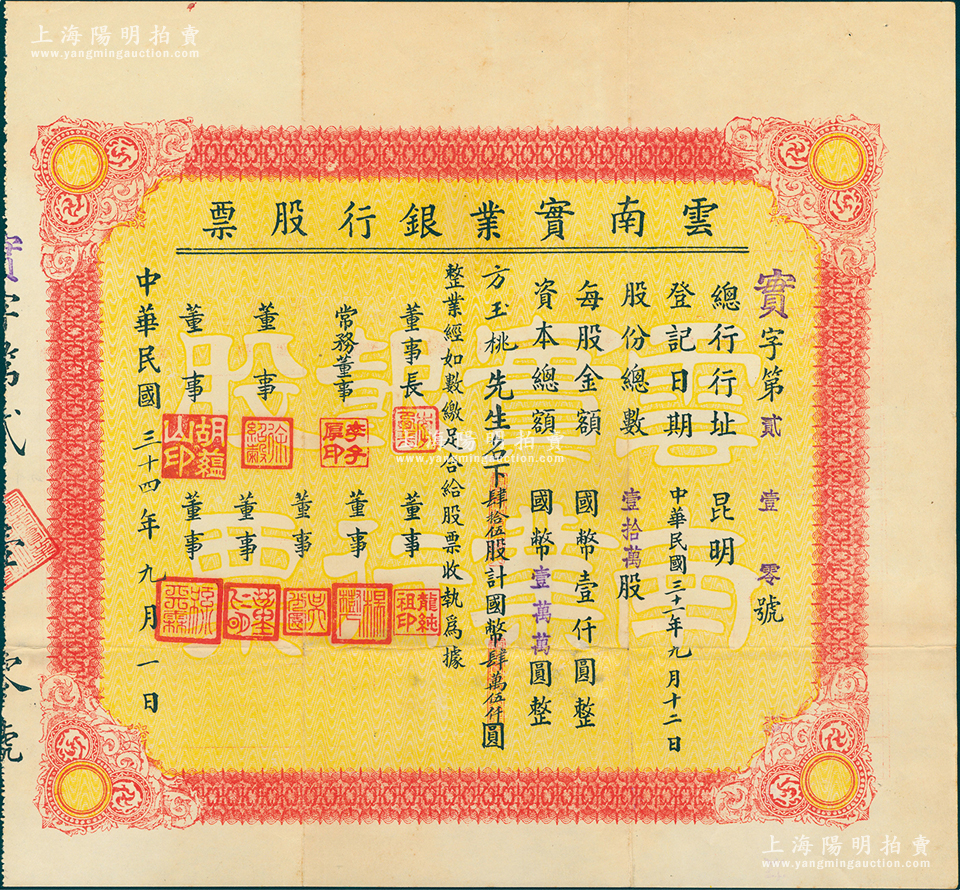 上海陽明拍賣
www.yangmingauction.com
雲南實業銀行股票
實字第貳壹零號
總行行址 昆明
登記日期 中華民國三十一年九月十二日
股份總數 壹拾萬股
每股金額 國幣壹仟圓整
資本總額 國幣壹萬萬圓整
方玉桃先生名下肆拾伍股計國幣肆萬伍仟圓
整業經如數繳足合給股票收執為據
董事長
常務董事 李子厚印
董事
董事 胡蘊山印
董事 龍純祖印
董事
董事
董事
董事
中華民國三十四年九月一日
上海陽明拍賣
www.yangmingauction.com
上海陽明拍賣
www.yangmingauction.com